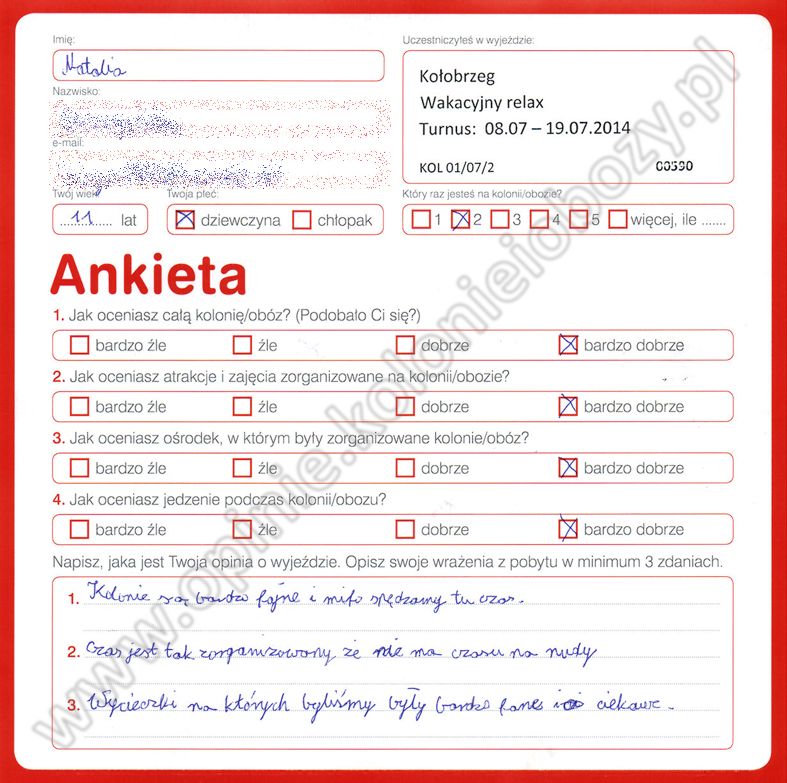 Imię:
Natalia
Nazwisko:
e-mail:
Twój wiek
11 lat
Twoja płeć:
dziewczyna chłopak
Uczestniczyłeś w wyjeździe:
Kołobrzeg
Wakacyjny relax
Turnus: 08.07 – 19.07.2014
KOL 01/07/2 00590
Który raz jesteś na kolonii/obozie?
1 2 3 4 5 więcej, ile .......
Ankieta
1. Jak oceniasz całą kolonię/obóz? (Podobało Ci się?)
bardzo źle źle dobrze bardzo dobrze
2. Jak oceniasz atrakcje i zajęcia zorganizowane na kolonii/obozie?
bardzo źle źle dobrze bardzo dobrze
3. Jak oceniasz ośrodek, w którym były zorganizowane kolonie/obóz?
bardzo źle źle dobrze bardzo dobrze
4. Jak oceniasz jedzenie podczas kolonii/obozu?
bardzo źle źle dobrze bardzo dobrze
Napisz, jaka jest Twoja opinia o wyjeździe. Opisz swoje wrażenia z pobytu w minimum 3 zdaniach.
1. Kolonie są bardzo fajne i miło spędzamy tu czas.
2. Czas jest tak zorganizowany że nie ma czasu na nudy
3. Wycieczki na których byliśmy były bardzo fanes i ciekawe.
www.opinie.kolonieiobozy.pl